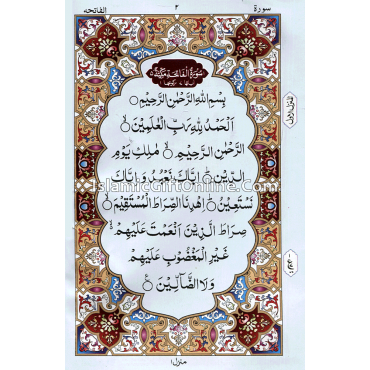 سورة ٢ الفاتحه
سورة الفاتحة مكية
بِسْمِ اللهِ الرَّحْمٰنِ الرَّحِيْمِ
اَلْحَمْدُ لِلّٰهِ رَبِّ الْعٰلَمِيْنَ
الرَّحْمٰنِ الرَّحِيْمِ مٰلِكِ يَوْمِ
الدِّيْنِ اِيَّاكَ نَعْبُدُ وَاِيَّاكَ
IslamicGiftOnline.Com
نَسْتَعِيْنُ اِهْدِنَا الصِّرَاطَ الْمُسْتَقِيْمَ
صِرَاطَ الَّذِيْنَ اَنْعَمْتَ عَلَيْهِمْ
غَيْرِ الْمَغْضُوْبِ عَلَيْهِمْ
وَلَا الضَّآلِّيْنَ
منزل ١